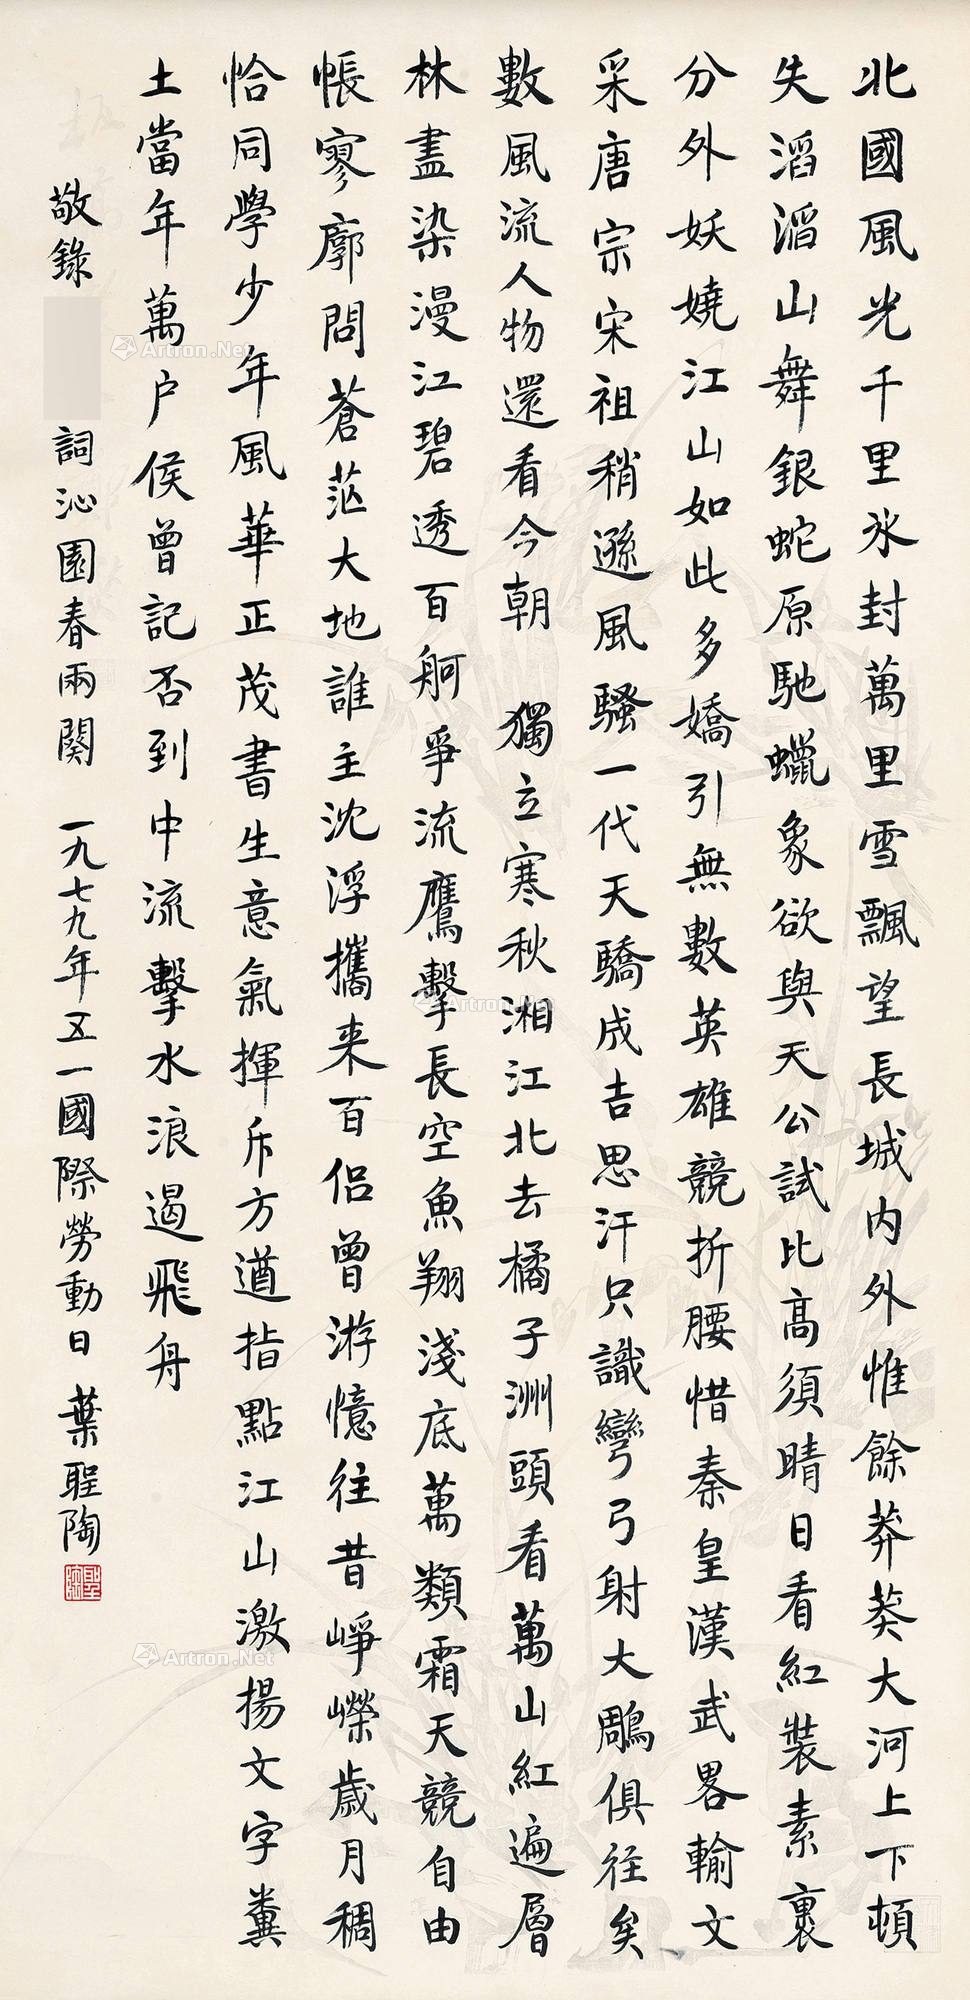 北國風光千里冰封萬里雪飄望長城内外惟餘莽莽大河上下頓
失滔滔山舞銀蛇原馳蠟象欲與天公試比高須晴日看紅裝素裹
分外妖嬈江山如此多嬌引無數英雄競折腰惜秦皇漢武畧輸文
采唐宗宋祖稍遜風騷一代天驕成吉思汗只識彎弓射大鵰俱往矣
數風流人物還看今朝 獨立寒秋湘江北去橘子洲頭看萬山紅遍層
林盡染漫江碧透百舸爭流鷹擊長空魚翔淺底萬類霜天競自由
悵寥廓問蒼茫大地誰主沈浮攜来百侶曾游憶往昔崢嶸歲月稠
恰同學少年風華正茂書生意氣揮斥方遒指點江山激揚文字糞
土當年萬户侯曾記否到中流擊水浪遏飛舟
敬錄 詞沁園春兩闋 一九七九年五一國際勞動日 葉聖陶
聖陶
Artron.Net
Artron.Net
Artron.Net